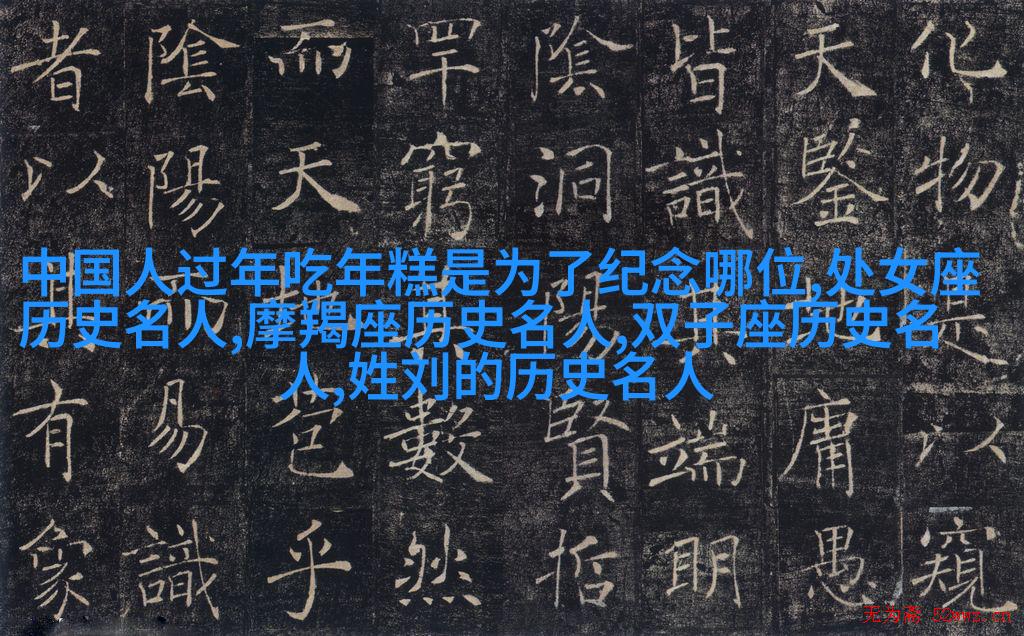 中国人过年吃年糕是为了纪念哪位,处女座
历史名人,摩羯座历史名人,双子座历史名
人,姓刘的历史名人
化物是以窺
天鑒地庸愚
皆識其端明
陰洞陽賢哲
罕窮其數然
而天地苞乎
陰陽而易識
者以其有象
无为斋 52wwz.cn